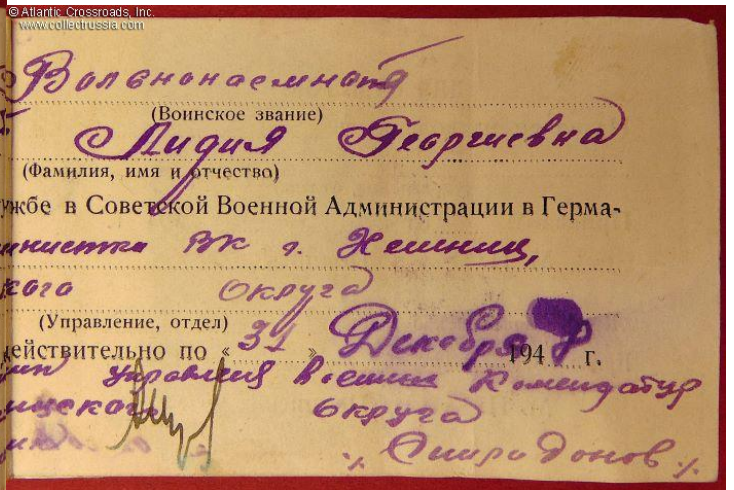 © Atlantic Crossroads, Inc.
www.collectrussia.com
Вольнонаемная
(Воинское звание)
Лидия Георгиевна
(Фамилия, имя и отчество)
ужбе в Советской Военной Администрации в Герма-
инистка ВК г. Хемниц,
кого округа
(Управление, отдел)
действительно по « 31 » Декабря 194 г.
Военных Комендатур
округа
Спиридонов